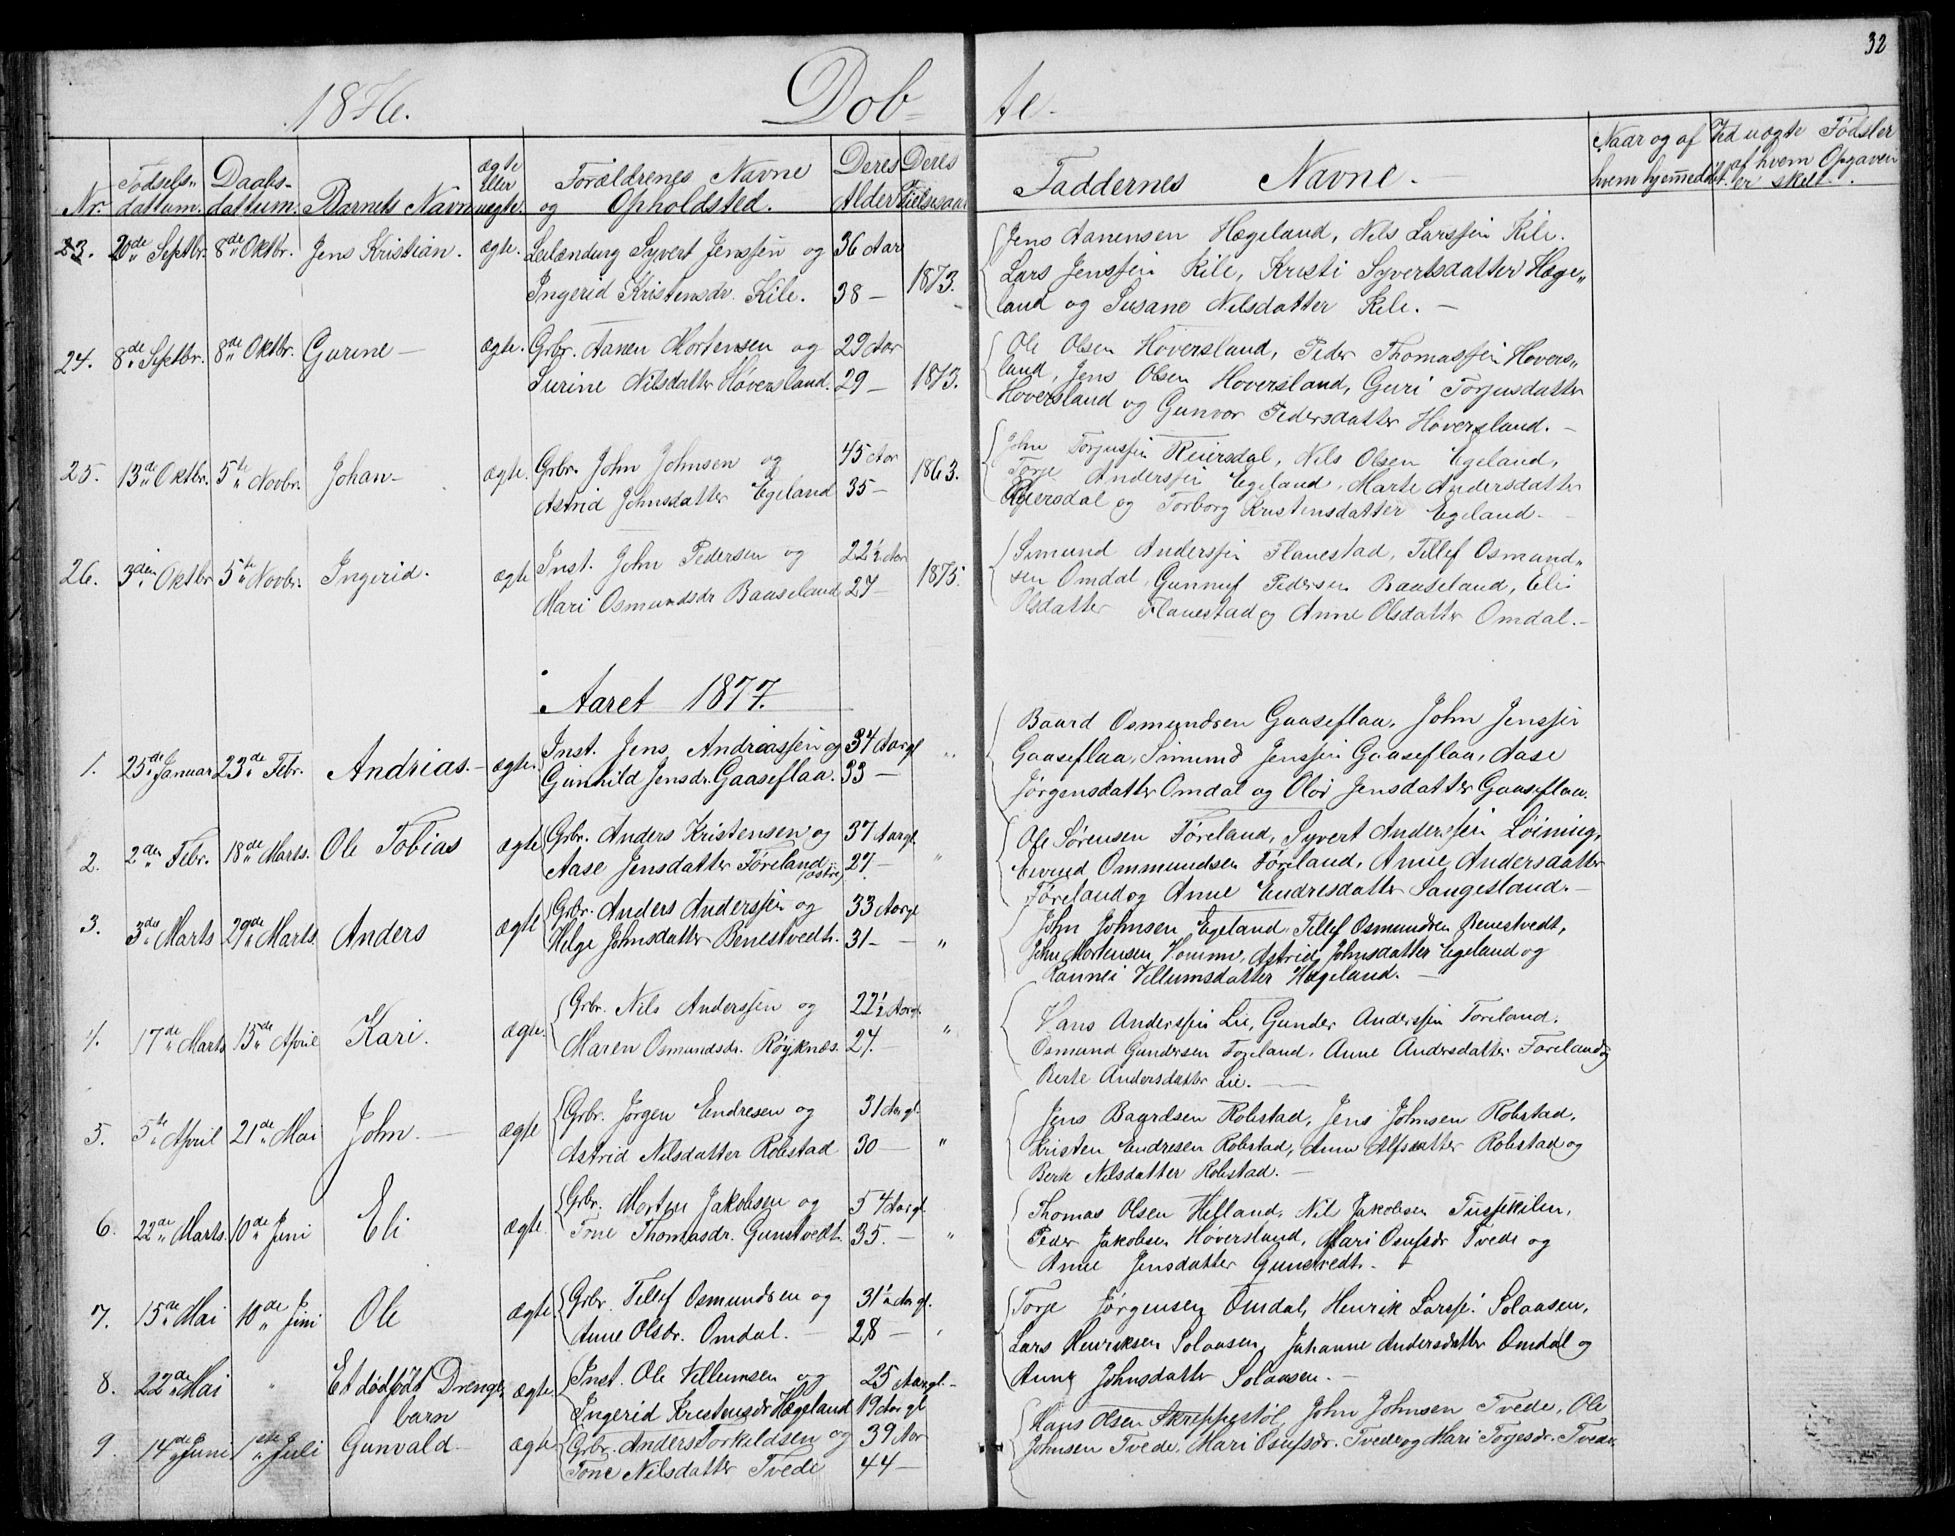 32
1876. Døb- te.
Nr. Fødsels- dattum. Daabs- dattum. Barnets Navn ægte eller uægte. Forældrenes Navne og Opholdsted. Deres Alder Deres Vielsesaar Faddernes Navne. Naar og af hvem hjemmedøbt. Ved uægte Fødsler af hvem Opgaven er skeet.
23. 20de Septbr. 8de Oktbr. Jens Kristian. ægte. Leilænding Syvert Jenssen og 36 Aar
Ingerid Kristensdr. Kile. 38 — 1873.
Jens Aanensen Hægeland, Nils Larssen Kile.
Lars Jenssen Kile, Kristi Syvertsdatter Hæge„
land og Susane Nilsdatter Kile. —
24. 8de Septbr. 8de Oktbr. Gurine — ægte. Grbr. Aanen Mortensen og 29 Aar
Surine Nilsdatter Høversland. 29 — 1873.
Ole Olsen Høversland, Peder Thomassen Høvers„
land, Jens Olsen Høversland, Guri Torjusdatter
Høversland og Gunvor Pedersdatter Høversland. —
25. 13de Oktbr. 5te Novbr. Johan — ægte. Grbr. John Johnsen og 45 Aar
Astrid Johnsdatter Egeland 35 — 1863.
John Torjussen Reiersdal, Nils Olsen Egeland,
Torje Anderssen Egeland, Marte Andersdatter
Reiersdal og Torborg Kristensdatter Egeland —
26. 3die Oktbr 5te Novbr. Ingerid. ægte Inst. John Pedersen og 22½ Aar
Mari Osmundsdr Baaseland 27 — 1875.
Simund Anderssen Flanestad, Tellef Osmund„
sen Omdal, Gunnuf Pedersen Baaseland, Eli
Olsdatter Flanestad og Anne Olsdatter Omdal. —
Aaret 1877.
1. 25de Januar 23de Febr. Andrias. — ægte. Inst. Jens Andriassen og 34 Aargl
Gunhild Jensdr. Gaaseflaa. 33 — „
Baard Osmundsen Gaaseflaa, John Jenssen
Gaaseflaa, Simund Jenssen Gaaseflaa, Aase
Jørgensdatter Omdal og Olov Jensdatter Gaaseflaa.
2. 2den Febr. 18de Marts. Ole Tobias ægte Grbr. Anders Kristensen og 37 Aargl.
Aase Jensdatter Føreland (østre) 27. — „
Ole Sørensen Føreland, Syvert Anderssen Løining,
Eivind Ommundsen Føreland, Anne Andersdatter
Føreland og Anne Endresdatter Sangesland. —
3. 3die Marts 29de Marts. Anders ægte Grbr. Anders Anderssen og 33 Aargl
Helge Johnsdatter Benestvedt. 31 — „
John Johnsen Egeland, Tellef Osmundsen Benestvedt,
John Mortensen Homme, Astrid Johnsdatter Egeland og
Rannei Villumsdatter Hægeland. —
4. 17de Marts 15de April Kari. ægte. Grbr. Nils Anderssen og 22½ Aargl.
Maren Osmundsdr. Røyknæs. 27. — „
Hans Anderssen Lie, Gunder Anderssen Føreland.
Osmund Gundersen Føreland, Anne Andersdatter Føreland og
Berte Andersdatter Lie. —
5. 5te April 21de Mai John. — ægte Grbr. Jørgen Endresen og 31 Aargl.
Astrid Nilsdatter Robstad 30 — „
Jens Baardsen Robstad, Jens Johnsen Robstad,
Kristen Endresen Robstad, Anne Alfsdatter Robstad og
Berte Nilsdatter Robstad. —
6. 22de Marts. 10de Juni Eli ægte. Grbr. Morten Jakobsen og 54 Aargl.
Tone Thomasdr. Gunstvedt. 35. — „
Thomas Olsen Helland, Nil Jakobsen Tussekilen,
Peder Jakobsen Høversland, Mari Osufsdr Tvede og
Anne Jensdatter Gunstvedt. —
7. 15de Mai 10de Juni Ole ægte. Grbr. Tellef Osmundsen og 31½ Aargl.
Anne Olsdr. Omdal. — 28 — „
Torje Jørgensen Omdal, Henrik Larssen Solaasen,
Lars Henriksen Solaasen, Johanne Andersdatter Omdal og
Anne Johnsdatter Solaasen. —
8. 22de Mai „ Et dødfødt Drenge„ ægte Inst. Ole Villumsen og 25 Aargl. —
barn Ingerid Kristensdr Hægeland 19 Aargl
9. 14de Juni 1ste Juli Gunvald ægte Grbr. Anders Torkildsen og 39 Aar
Tone Nilsdatter Tvede 44 —
Hans Olsen Skreppestøl, John Johnsen Tvede, Ole
Johnsen Tvede, Mari Osufsdr. Tvede og Mari Torjesdr. Tvede.